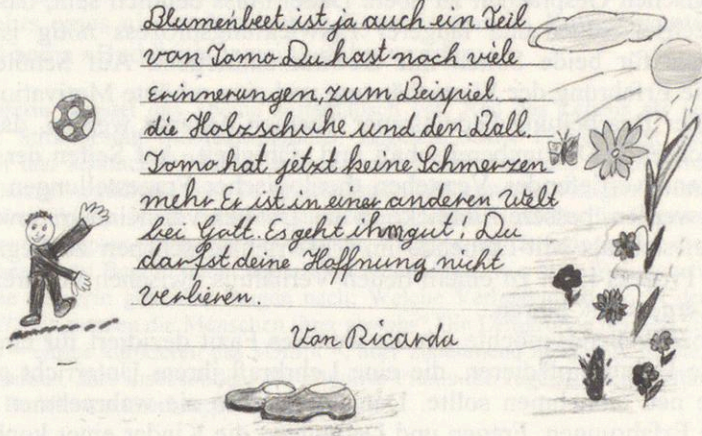 Blumenbeet ist ja auch ein Teil
von Tomo Du hast noch viele
Erinnerungen, zum Beispiel
die Holzschuhe und den Ball.
Tomo hat jetzt keine Schmerzen
mehr. Er ist in einer anderen Welt
bei Gott. Es geht ihm gut! Du
darfst deine Hoffnung nicht
verlieren.
Von Ricarda